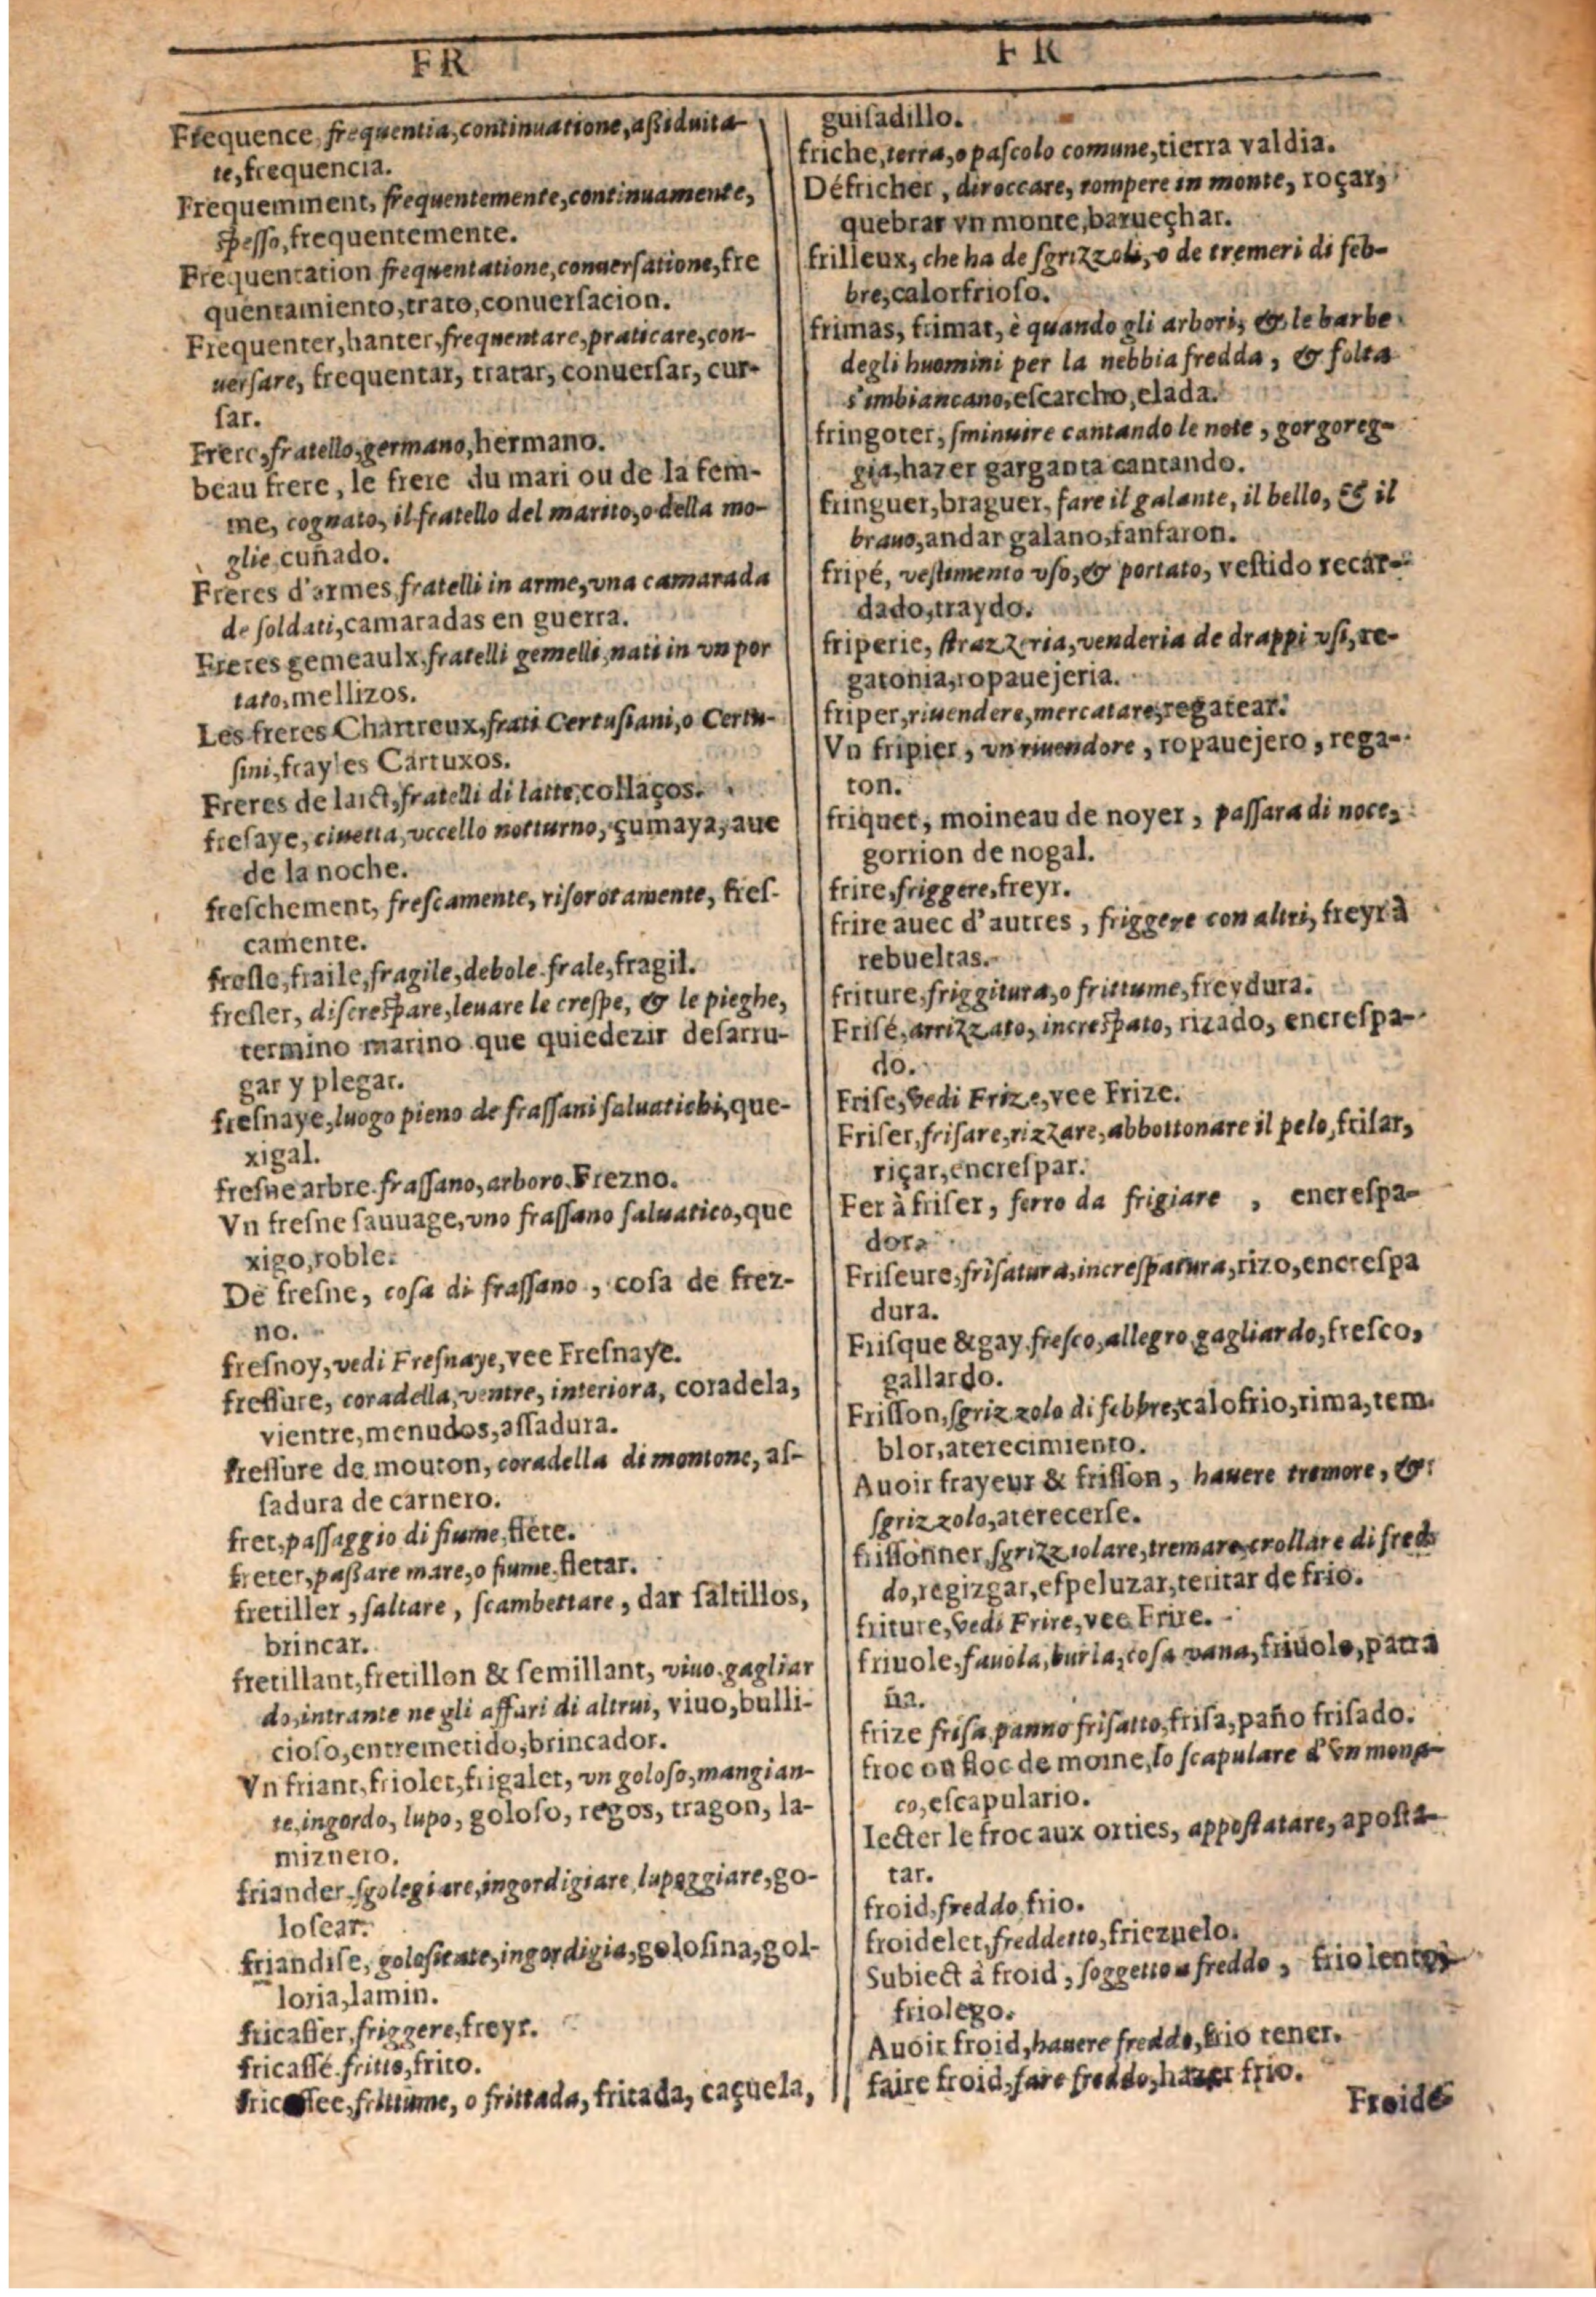 FR
Frequence, frequentia, continuatione, aßiduita-
te, frequencia.
Frequemment, frequentemente, continuamente,
speſſo, frequentemente.
Frequentation frequentatione, conuerſatione, fre
quentamiento, trato, conuerſacion.
Frequenter, hanter, frequentare, praticare, con-
uerſare, frequentar, tratar, conuerſar, cur-
ſar.
Frere, fratello, germano, hermano.
beau frere, le frere du mari ou de la fem-
me, cognato, il fratello del marito, o della mo-
glie, cuñado.
Freres d'armes, fratelli in arme, vna camarada
de ſoldati, camaradas en guerra.
Freres gemeaulx, fratelli gemelli, nati in vn por
tato, mellizos.
Les freres Chartreux, frati Certuſiani, o Certu-
ſini, frayles Cartuxos.
Freres de laict, fratelli di latte, collaços.
freſaye, ciuetta, vccello notturno, çumaya, aue
de la noche.
freſchement, freſcamente, riſorotamente, freſ-
camente.
freſle, fraile, fragile, debole. frale, fragil.
freſler, diſcreſpare, leuare le creſpe, & le pieghe,
termino marino que quiedezir deſarru-
gar y plegar.
freſnaye, luogo pieno de fraſſani ſaluatichi, que-
xigal.
freſne arbre. fraſſano, arboro. Frezno.
Vn freſne ſauuage, vno fraſſano ſaluatico, que
xigo, roble.
De freſne, coſa di fraſſano, coſa de frez-
no.
freſnoy, vedi Freſnaye, vee Freſnaye.
freſſure, coradella, ventre, interiora, coradela,
vientre, menudos, aſſadura.
freſſure de mouton, coradella di montone, aſ-
ſadura de carnero.
fret, paſſaggio di fiume, flete.
freter, paßare mare, o fiume. fletar.
fretiller, ſaltare, ſcambettare, dar ſaltillos,
brincar.
fretillant, fretillon & ſemillant, viuo. gagliar
do, intrante ne gli affari di altrui, viuo, bulli-
cioſo, entremetido, brincador.
Vn friant, friolet, frigalet, vn goloſo, mangian-
te, ingordo, lupo, goloſo, regos, tragon, la-
miznero.
friander, ſgolegiare, ingordigiare, lupeggiare, go-
loſear.
friandiſe, goloſitate, ingordigia, goloſina, gol-
loria, lamin.
fricaſſer, friggere, freyr.
fricaſſé. fritto, frito.
fricaſſee, frittume, o frittada, fritada, caçuela,
FR
guiſadillo.
friche, terra, o paſcolo comune, tierra valdia.
Défricher, diroccare, rompere in monte, roçar,
quebrar vn monte, barueçhar.
frilleux, che ha de ſgrizzoli, o de tremeri di feb-
bre, calorfrioſo.
frimas, frimat, è quando gli arbori, & le barbe
degli huomini per la nebbia fredda, & folta
s'imbiancano, eſcarcho, elada.
fringoter, ſminuire cantando le note, gorgoreg-
gia, hazer garganta cantando.
fringuer, braguer, fare il galante, il bello, & il
brauo, andar galano, fanfaron.
fripé, veſtimento vſo, & portato, veſtido recar-
dado, traydo.
friperie, ſtrazzeria, venderia de drappi vſi, re-
gatonia, ropauejeria.
friper, riuendere, mercatare, regatear.
Vn fripier, vn riuendore, ropauejero, rega-
ton.
friquet, moineau de noyer, paſſara di noce,
gorrion de nogal.
frire, friggere, freyr.
frire auec d'autres, friggere con altri, freyr à
rebueltas.
friture, friggitura, o frittume, freydura.
Friſé, arrizzato, increſpato, rizado, encreſpa-
do.
Friſe, vedi Frize, vee Frize.
Friſer, friſare, rizzare, abbottonare il pelo, friſar,
riçar, encreſpar.
Fer à friſer, ferro da frigiare, encreſpa-
dor.
Friſeure, friſatura, increſpatura, rizo, encreſpa
dura.
Friſque & gay. freſco, allegro, gagliardo, freſco,
gallardo.
Friſſon, ſgrizzolo di febbre, calofrio, rima, tem-
blor, aterecimiento.
Auoir frayeur & friſſon, hauere tremore, &
ſgrizzolo, aterecerſe.
friſſonner, ſgrizzolare, tremare, crollare di fred-
do, regizgar, eſpeluzar, teritar de frio.
friture, vedi Frire, vee Frire.
friuole, fauola, burla, coſa vana, friuole, patra
ña.
frize friſa. panno friſatto, friſa, paño friſado.
froc ou floc de moine, lo ſcapulare d'vn mona-
co, eſcapulario.
Iecter le froc aux orties, appoſtatare, apoſta-
tar.
froid, freddo, frio.
froidelet, freddetto, friezuelo.
Subiect à froid, ſoggetto a freddo, friolento,
friolego.
Auoir froid, hauere freddo, frio tener.
faire froid, fare freddo, hazer frio.
Froide